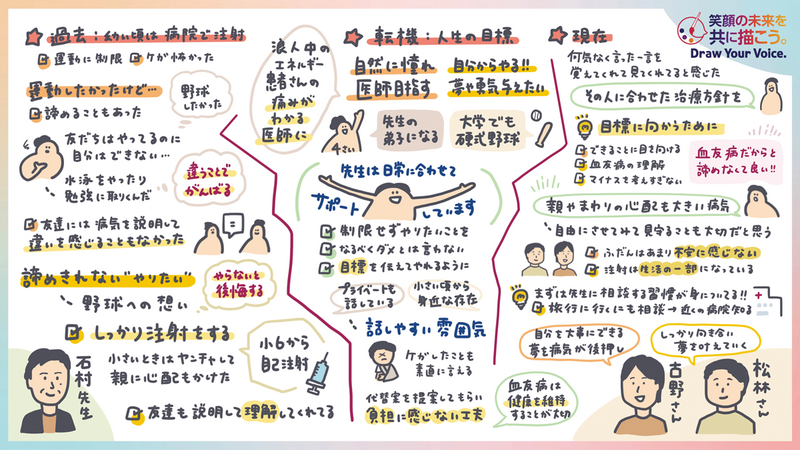 過去：幼い頃は病院で注射
運動に制限
ケガ怖かった
運動したかったけど…
野球
したかった
諦めることもあった
友だちはやってるのに
自分はできない…
水泳をやったり
勉強に取りくんだ
違うことで
がんばる
友達には病気を説明して
違いを感じることもなかった
諦めきれない"やりたい"
野球への想い
やらないと
後悔する
しっかり注射をする
小さいときはヤンチャして
親に心配もかけた
小6から
自己注射
友達も説明して理解してくれてる
石村先生
浪人中の
エネルギー
患者さんの
痛みが
わかる
医師に
転機：人生の目標
自然に憧れ
医師目指す
自分からやる!!
夢や勇気与えたい
4さい
先生の
弟子になる
大学でも
硬式野球
先生は日常に合わせて
サポート
しています
制限せずやりたいことを
なるべくダメとは言わない
目標を伝えてやれるように
プライベートも
話している
小さい頃から
身近な存在
話しやすい雰囲気
ケガしたことも
素直に言える
代替案を提案してもらい
負担に感じない工夫
現在
何気なく言った一言を
覚えてくれて見てくれてると感じた
その人に合わせた治療方針を
目標に向かうために
できることに目を向ける
血友病の理解
マイナスを考えすぎない
血友病だからと
諦めなくて良い!!
親やまわりの心配も大きい病気
自由にさせてみて見守ることも大切だと思う
ふだんはあまり不安に感じない
注射は生活の一部になっている
まずは先生に相談する習慣が身についてる!!
旅行に行くにも相談→近くの病院知る
自分を大事にできる
夢を病気が後押し
しっかり向き合い
夢を叶えていく
血友病は
健康を維持
することが大切
古野さん
松林さん
笑顔の未来を
共に描こう。
Draw Your Voice.